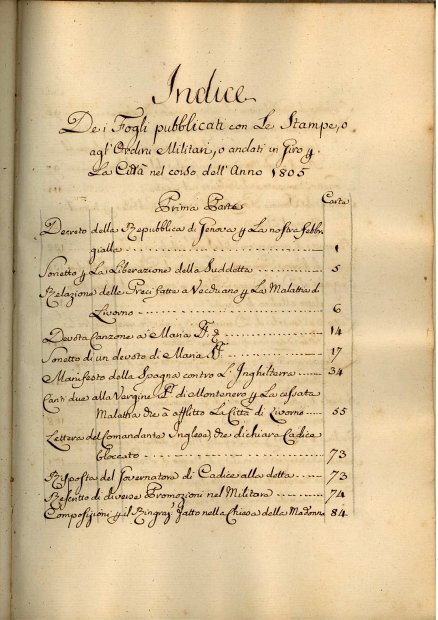 Indice
De i Fogli pubblicati con Le Stampe, o
agl' Ordini Militari, o andati in Giro p.
La Città nel corso dell' Anno 1805
Prima Parte Carta
Decreto della Repubblica di Genova p La nostra febbre
gialla 1
Sonetto p La Liberazione della Suddetta 5
Relazione delle Preci fatte a p La Malattia di
Livorno 6
Devota Canzone a Maria SS. 14
Sonetto di un devoto di Maria SS. 17
Manifesto della Spagna contro L' Inghilterra 34
Canti due alla Vergine SS. di Montenero p La cessata
Malattia che à afflitto La Città di Livorno 55
Lettera del Comandante Inglese, che dichiara Cadice
bloccato 73
Risposta del Governatore di Cadice alla detta 73
Rescritto di diverse Promozioni nel Militare 74
Composizioni p il Ringraz.° fatto nella Chiesa della Madonna 84